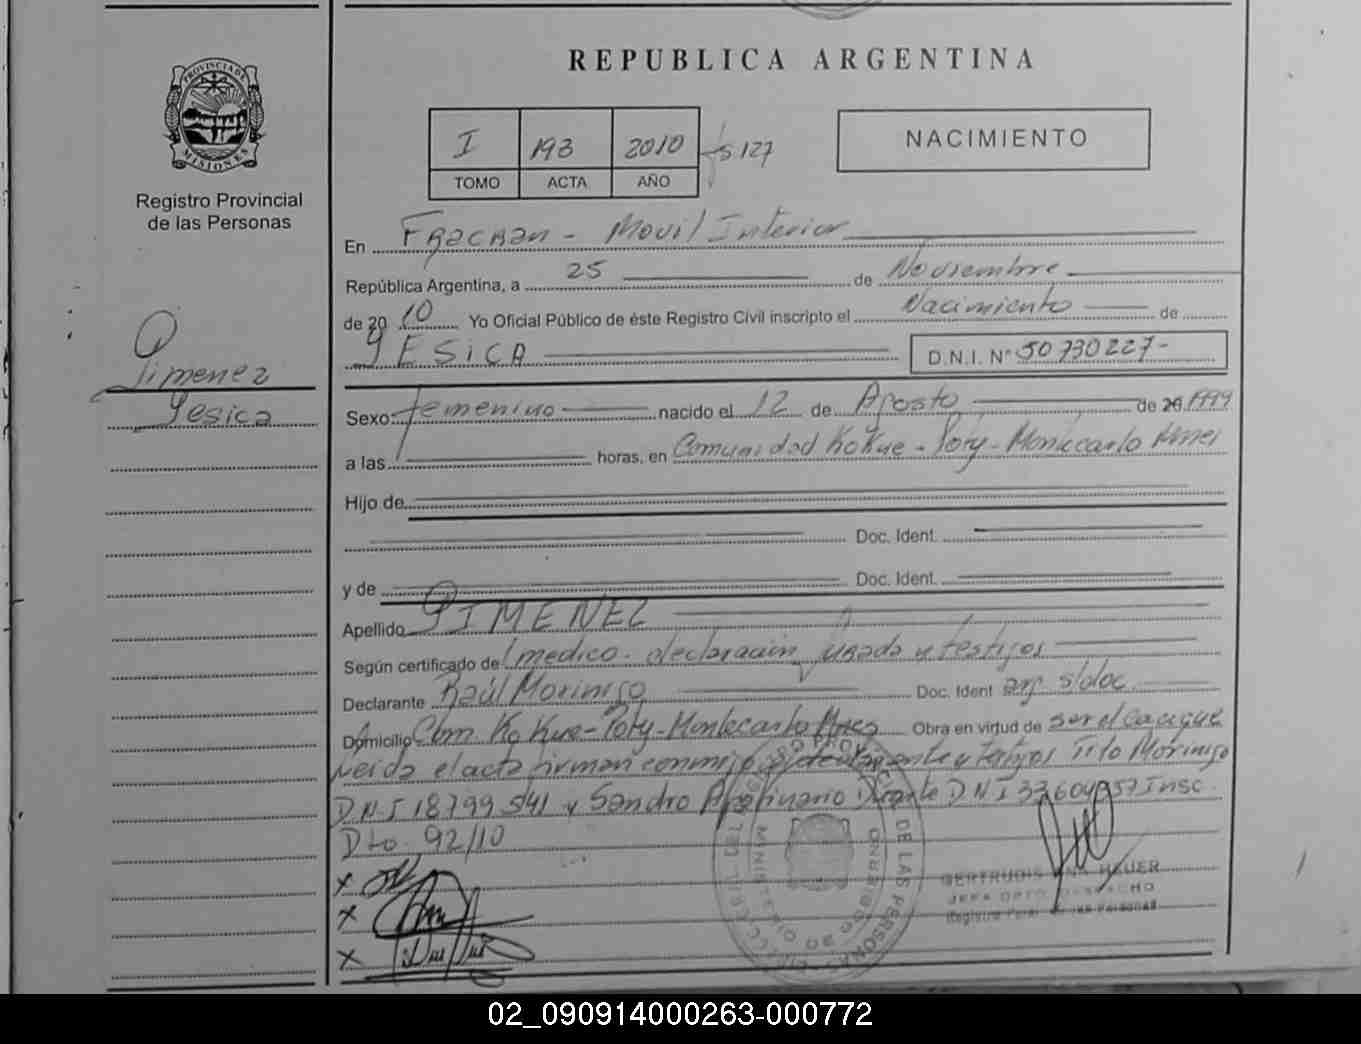 REPUBLICA ARGENTINA
PROVINCIA DE MISIONES
Registro Provincial
de las Personas
I 193 2010 fs 127
TOMO ACTA AÑO
NACIMIENTO
En Fracran - Movil Interior
República Argentina, a 25 de Noviembre
de 2010 Yo Oficial Público de éste Registro Civil inscripto el Nacimiento de
YESICA D.N.I. Nº 50730227-
Gimenez
Yesica
Sexo femenino nacido el 12 de Agosto de 20 1999
a las horas, en Comunidad KoKue - Poty - Montecarlo Mnes
Hijo de
Doc. Ident.
y de Doc. Ident.
Apellido GIMENEZ
Según certificado de medico - declaracion Jurada y testigos
Declarante Raúl Morinigo Doc. Ident arg s/doc
Domicilio Com KoKue - Poty - Montecarlo Mnes Obra en virtud de ser el cacique
Leida el acta firman conmigo el declarante y testigos Tito Morinigo
D.N.I 18799541 y Sandro Duarte D.N.I 33604957 Insc.
Dto. 92/10
X
X
X
DE LAS PERSONAS
GERTRUDIS ANA HEUER
JEFA DPTO DESPACHO
Registro Prov. de las Personas
02_090914000263-000772